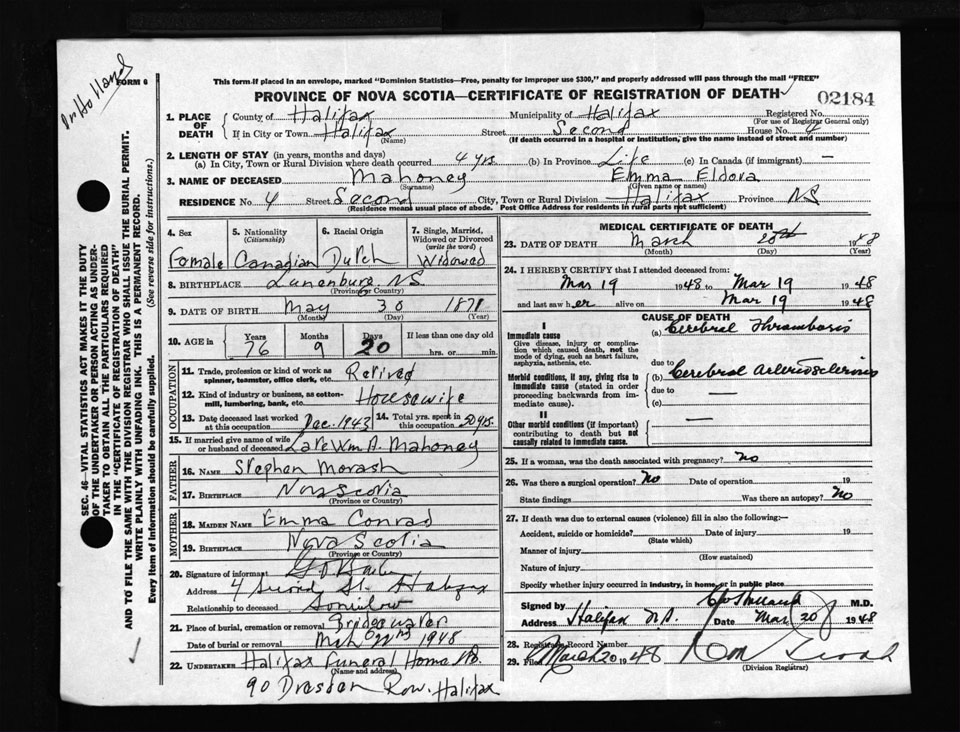 In Holland
FORM 6
This form if placed in an envelope, marked "Dominion Statistics—Free, penalty for improper use $300," and properly addressed will pass through the mail "FREE"
PROVINCE OF NOVA SCOTIA—CERTIFICATE OF REGISTRATION OF DEATH
02184
1. PLACE OF DEATH
County of Halifax Municipality of Halifax Registered No.
(For use of Registrar General only)
If in City or Town Halifax Street Second House No. 4
(Name) (If death occurred in a hospital or institution, give the name instead of street and number)
2. LENGTH OF STAY (in years, months and days)
(a) In City, Town or Rural Division where death occurred 4 yrs. (b) In Province Life (c) In Canada (if immigrant) —
3. NAME OF DECEASED Mahoney Emma Eldora
(Surname) (Given name or names)
RESIDENCE No 4 Street Second City, Town or Rural Division Halifax Province NS
(Residence means usual place of abode. Post Office Address for residents in rural parts not sufficient)
4. Sex 5. Nationality (Citizenship) 6. Racial Origin 7. Single, Married, Widowed or Divorced (write the word)
Female Canadian Dutch Widowed
8. BIRTHPLACE Lunenburg NS
(Province or Country)
9. DATE OF BIRTH May 30 1871
(Month) (Day) (Year)
10. AGE in Years Months Days If less than one day old
76 9 20 hrs. or min.
OCCUPATION
11. Trade, profession or kind of work as spinner, teamster, office clerk, etc. Retired
12. Kind of industry or business, as cotton-mill, lumbering, bank, etc. Housewife
13. Date deceased last worked at this occupation Dec. 1943 14. Total yrs. spent in this occupation 50 yrs.
15. If married give name of wife or husband of deceased Late Wm A. Mahoney
FATHER
16. NAME Stephen Morash
17. BIRTHPLACE Nova Scotia
(Province or Country)
MOTHER
18. MAIDEN NAME Emma Conrad
19. BIRTHPLACE Nova Scotia
(Province or Country)
20. Signature of informant
Address 4 Second St. Halifax
Relationship to deceased Son in law
21. Place of burial, cremation or removal Bridgewater
Date of burial or removal Mch 22nd 1948
22. UNDERTAKER Halifax Funeral Home
(Name and address)
90 Dresden Row. Halifax
MEDICAL CERTIFICATE OF DEATH
23. DATE OF DEATH March 20th 1948
(Month) (Day) (Year)
24. I HEREBY CERTIFY that I attended deceased from:
Mar 19 1948 to Mar 19 1948
and last saw her alive on Mar 19 1948
CAUSE OF DEATH
I
Immediate cause
Give disease, injury or complication which caused death, not the mode of dying, such as heart failure, asphyxia, asthenia, etc.
(a) Cerebral Thrombosis
due to
Morbid conditions, if any, giving rise to immediate cause (stated in order proceeding backwards from immediate cause).
(b) Cerebral Arteriosclerosis
due to —
(c)
II
Other morbid conditions (if important) contributing to death but not causally related to immediate cause.
—
25. If a woman, was the death associated with pregnancy? No
26. Was there a surgical operation? No Date of operation 19
State findings Was there an autopsy? No
27. If death was due to external causes (violence) fill in also the following:—
Accident, suicide or homicide? Date of injury 19
(State which)
Manner of injury
(How sustained)
Nature of injury
Specify whether injury occurred in industry, in home, or in public place
Signed by M.D.
Address Halifax N.S. Date Mar 20 1948
28. Registrar's Record Number
29. Filed March 20 1948
(Division Registrar)
SEC. 46—VITAL STATISTICS ACT MAKES IT THE DUTY
OF THE UNDERTAKER OR PERSON ACTING AS UNDER-
TAKER TO OBTAIN ALL THE PARTICULARS REQUIRED
IN THE "CERTIFICATE OF REGISTRATION OF DEATH"
AND TO FILE THE SAME WITH THE DIVISION REGISTRAR WHO SHALL ISSUE THE BURIAL PERMIT.
WRITE PLAINLY WITH UNFADING INK. THIS IS A PERMANENT RECORD.
Every item of information should be carefully supplied. (See reverse side for instructions.)